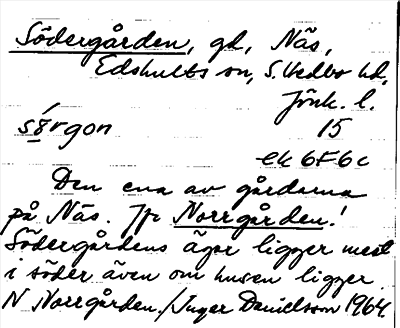 Södergården, gd, Näs,
Edshults sn, S. Vedbo hd,
Jönk. l.
sørgon 15
ek 6F6c
Den ena av gårdarna
på Näs. Jfr Norrgården!
Södergårdens ägor ligger mest
i söder även om husen ligger
N Norrgården. / Inger Danielsson 1964